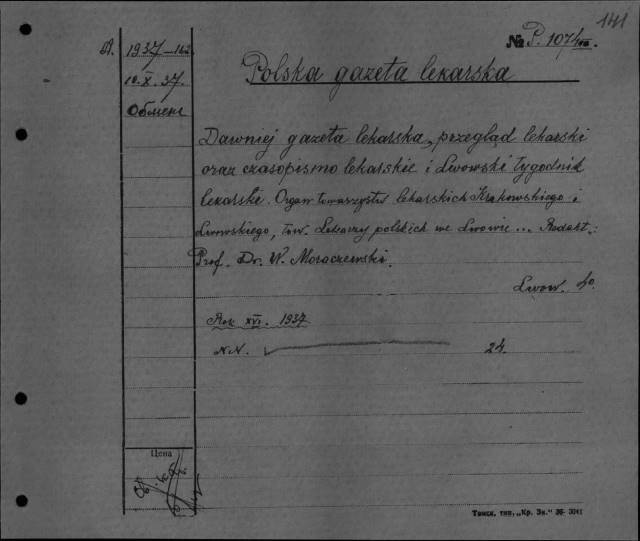 141
№ P. 107/
A. 1937-162
10.X.37
Обмен
Polska gazeta lekarska
Dawniej gazeta lekarska, przegląd lekarski
oraz czasopismo lekarskie i Lwowski tygodnik
lekarski. Organ towarzystw lekarskich Krakowskiego i
Lwowskiego, tow. Lekarzy polskich we Lwowie... Redakt.:
Prof. Dr. W. Moraczewski.
Lwow. 4o.
Rok XVI. 1937
N.N. 24.
Цена
Томск. тип. „Кр. Зн." 36- 3041